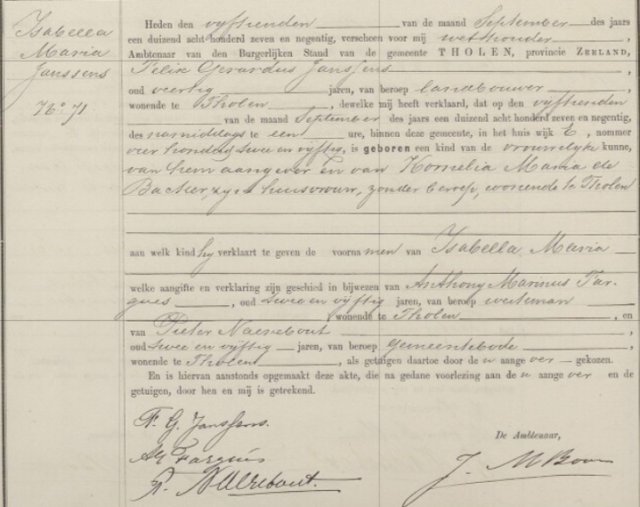 Isabella
Maria
Janssens
No. 71
Heden den vyftienden van de maand September des jaars
een duizend acht honderd zeven en negentig, verscheen voor mij wethouder
Ambtenaar van den Burgerlijken Stand van de gemeente THOLEN, provincie ZEELAND,
Felix Gerardus Janssens
oud veertig jaren, van beroep landbouwer
wonende te Tholen, dewelke mij heeft verklaard, dat op den vyftienden
van de maand September des jaars een duizend acht honderd zeven en negentig,
des namiddags te een ure, binnen deze gemeente, in het huis wijk, nommer
vier honderd twee en vyftig, is geboren een kind van de vrouwelyke kunne,
van hem aangever en van Kornelia Maria de
Bacher, zyne huisvrouw, zonder beroep, wonende te Tholen
aan welk kind hy verklaart te geven de voornamen van Isabella Maria
welke aangifte en verklaring zijn geschied in bijwezen van Anthony Marinus Far-
gues, oud twee en vyftig jaren, van beroep
wonende te Tholen, en
van Pieter Naerebout
oud twee en vyftig jaren, van beroep gemeentebode
wonende te Tholen, als getuigen daartoe door de n aange ver gekozen.
En is hiervan aanstonds opgemaakt deze akte, die na gedane voorlezing aan de n aange ver en de
getuigen, door hen en mij is geteekend.
F. G. Janssens.
De Ambtenaar,
AM Fargues
P. Naerebout.
J. M Boo